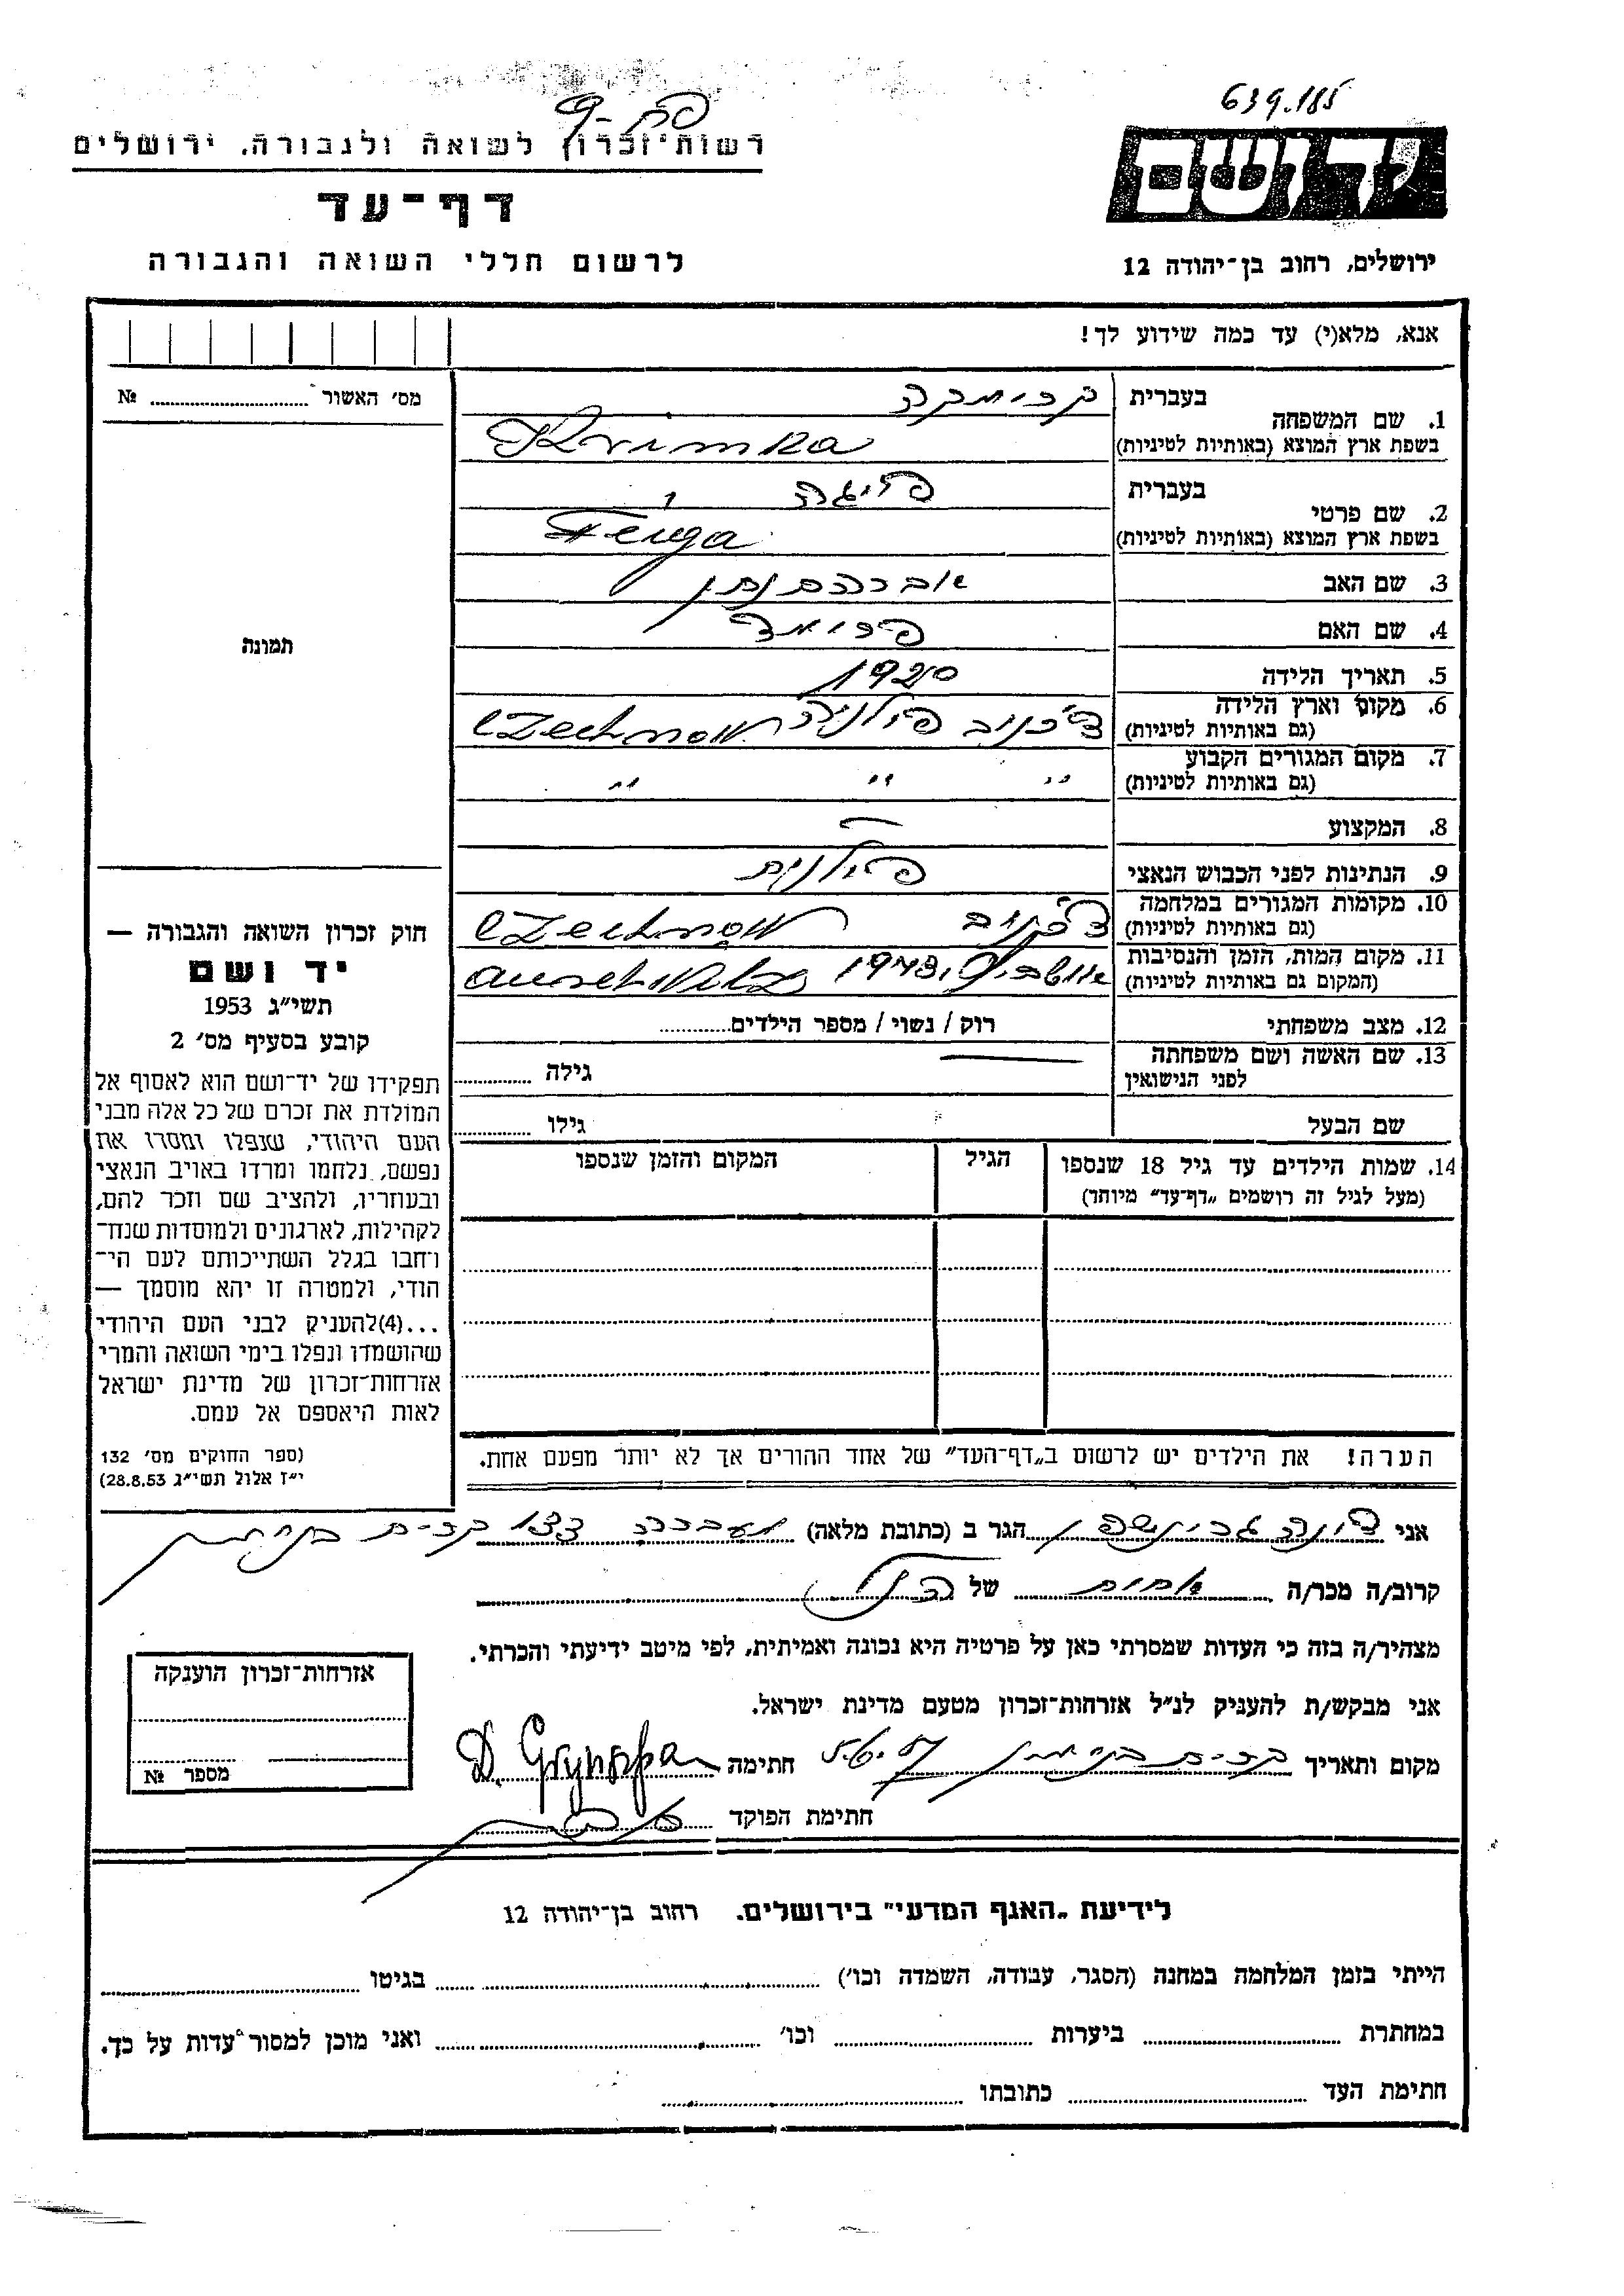 639.185
רשות־זכרון לשואה ולגבורה, ירושלים
ידושם
דף־עד
ירושלים, רחוב בן־יהודה 12
לרשום חללי השואה והגבורה
אנא, מלא(י) עד כמה שידוע לך!
מס׳ האשור ........ №
1. שם המשפחה
בעברית קרימקה
בשפת ארץ המוצא (באותיות לטיניות) Krimka
2. שם פרטי
בעברית פייגה
בשפת ארץ המוצא (באותיות לטיניות) Feiga
3. שם האב אברהם נתן
4. שם האם
5. תאריך הלידה 1920
6. מקום וארץ הלידה (גם באותיות לטיניות) צ׳כנוב פולניה Czechnow
7. מקום המגורים הקבוע (גם באותיות לטיניות) " " "
8. המקצוע —
9. הנתינות לפני הכבוש הנאצי פולנית
10. מקומות המגורים במלחמה (גם באותיות לטיניות) צ׳כנוב Czechnow
11. מקום המות, הזמן והנסיבות (המקום גם באותיות לטיניות) 1943
12. מצב משפחתי רוק / נשוי / מספר הילדים........
13. שם האשה ושם משפחתה לפני הנישואין — גילה ........
שם הבעל גילו ........
14. שמות הילדים עד גיל 18 שנספו
(מעל לגיל זה רושמים „דף־עד״ מיוחד)
הגיל
המקום והזמן שנספו
הערה! את הילדים יש לרשום ב„דף־העד״ של אחד ההורים אך לא יותר מפעם אחת.
תמונה
חוק זכרון השואה והגבורה —
יד ושם
תשי״ג 1953
קובע בסעיף מס׳ 2
תפקידו של יד־ושם הוא לאסוף אל
המולדת את זכרם של כל אלה מבני
העם היהודי, שנפלו ומסרו את
נפשם, נלחמו ומרדו באויב הנאצי
ובעוזריו, ולהציב שם וזכר להם,
לקהילות, לארגונים ולמוסדות שנח־
רחבו בגלל השתייכותם לעם הי־
הודי, ולמטרה זו יהא מוסמך —
...(4)להעניק לבני העם היהודי
שהושמדו ונפלו בימי השואה והמרי
אזרחות־זכרון של מדינת ישראל
לאות היאספם אל עמם.
(ספר החוקים מס׳ 132
י״ז אלול תשי״ג 28.8.53)
אני הגר ב (כתובת מלאה) מעברה קרית בנימין
קרוב/ה מכר/ה אחות של הנ״ל
מצהיר/ה בזה כי העדות שמסרתי כאן על פרטיה היא נכונה ואמיתית, לפי מיטב ידיעתי והכרתי.
אני מבקש/ת להעניק לנ״ל אזרחות־זכרון מטעם מדינת ישראל.
מקום ותאריך קרית בנימין חתימה
חתימת הפוקד
אזרחות־זכרון הוענקה
מספר №
לידיעת „האגף המדעי״ בירושלים. רחוב בן־יהודה 12
הייתי בזמן המלחמה במחנה (הסגר, עבודה, השמדה וכו׳) ........ בגיטו ........
במחתרת ........ ביערות ........ וכו׳ ........ ואני מוכן למסור עדות על כך.
חתימת העד ........ כתובתו ........